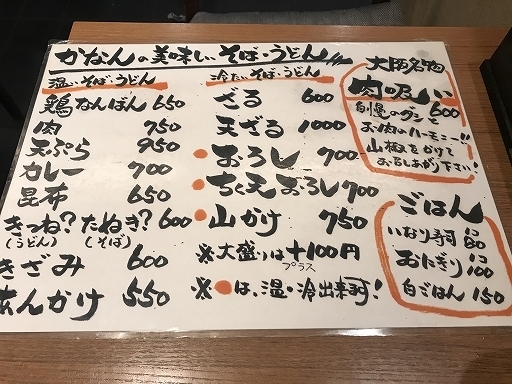 かなんの美味しいそば・うどん!!
温いそば・うどん
鶏なんばん 650
肉 750
天ぷら 950
カレー 700
昆布 650
きつね? たぬき? 600
(うどん) (そば)
きざみ 600
あんかけ 550
冷たいそば・うどん
ざる 600
天ざる 1000
●おろし 700
●ちく天おろし 700
●山かけ 750
※大盛りは+100円
プラス
※●は、温・冷出来可!
大阪名物
肉吸い
600
自慢のダシと
お肉のハーモニー!!
山椒をかけて
お召しあがり下さい!
ごはん
いなり寿司 1コ80
おにぎり 1コ100
白ごはん 150